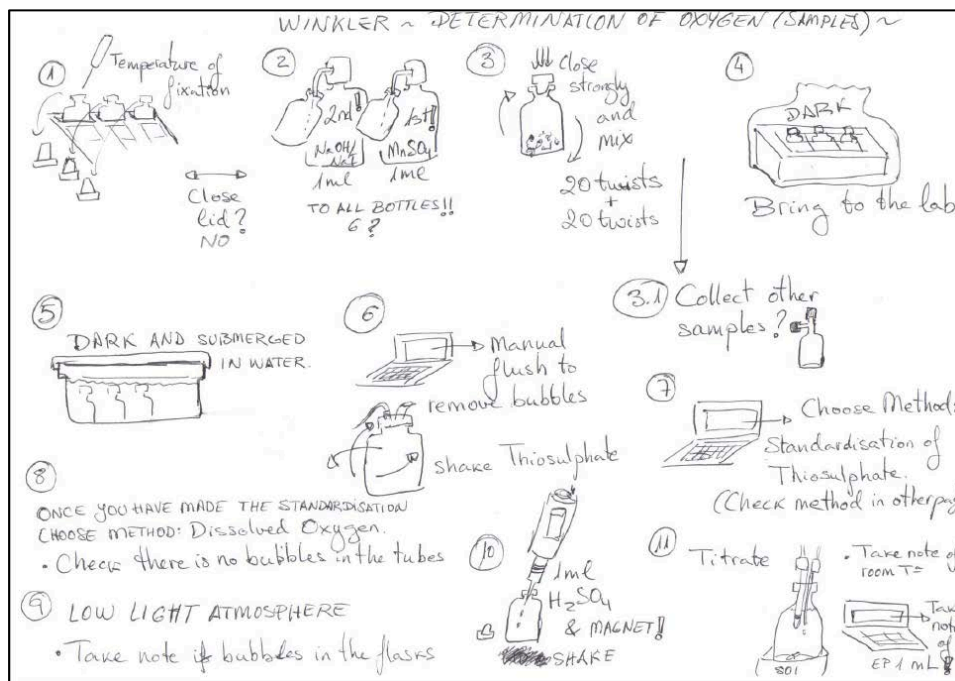 WINKLER ~ DETERMINATION OF OXYGEN (SAMPLES) ~
1
Temperature of
fixation
Close
lid?
NO
2
2nd!
1st!!
NaOH/
NaI
MnSO4
1ml
1ml
TO ALL BOTTLES!!
6?
3
close
strongly
and
mix
20 twists
+
20 twists
4
DARK
Bring to the lab
3.1 Collect other
samples?
5
DARK AND SUBMERGED
IN WATER.
6
Manual
flush to
remove bubbles
shake Thiosulphate
7
Choose Method:
Standardisation of
Thiosulphate.
(Check method in otherpag
8
ONCE YOU HAVE MADE THE STANDARDISATION
CHOOSE METHOD: Dissolved Oxygen.
• Check there is no bubbles in the tubes
9 LOW LIGHT ATMOSPHERE
• Take note if bubbles in the flasks
10
1ml
H2SO4
& MAGNET!!
SHAKE
11
Titrate
801
• Take note of
room T=
Take
note
of
EP1 mL